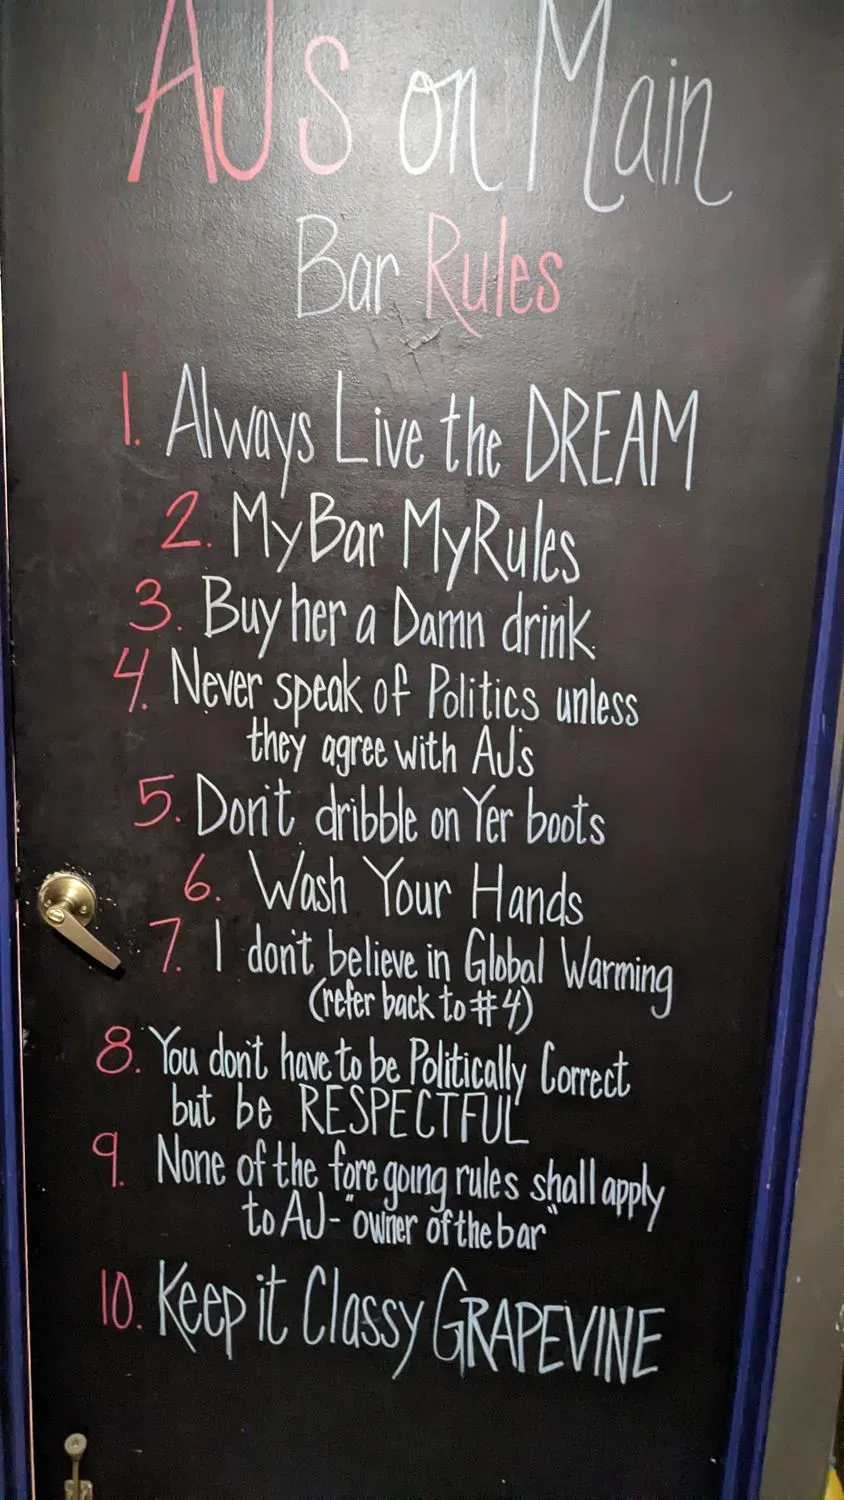 AJs on Main
Bar Rules
1. Always Live the DREAM
2. My Bar My Rules
3. Buy her a Damn drink.
4. Never speak of Politics unless
they agree with AJs
5. Don't dribble on Yer boots
6. Wash Your Hands
7. I don't believe in Global Warming
(refer back to #4)
8. You don't have to be Politically Correct
but be RESPECTFUL
9. None of the fore going rules shall apply
to AJ-"owner of the bar"
10. Keep it Classy GRAPEVINE